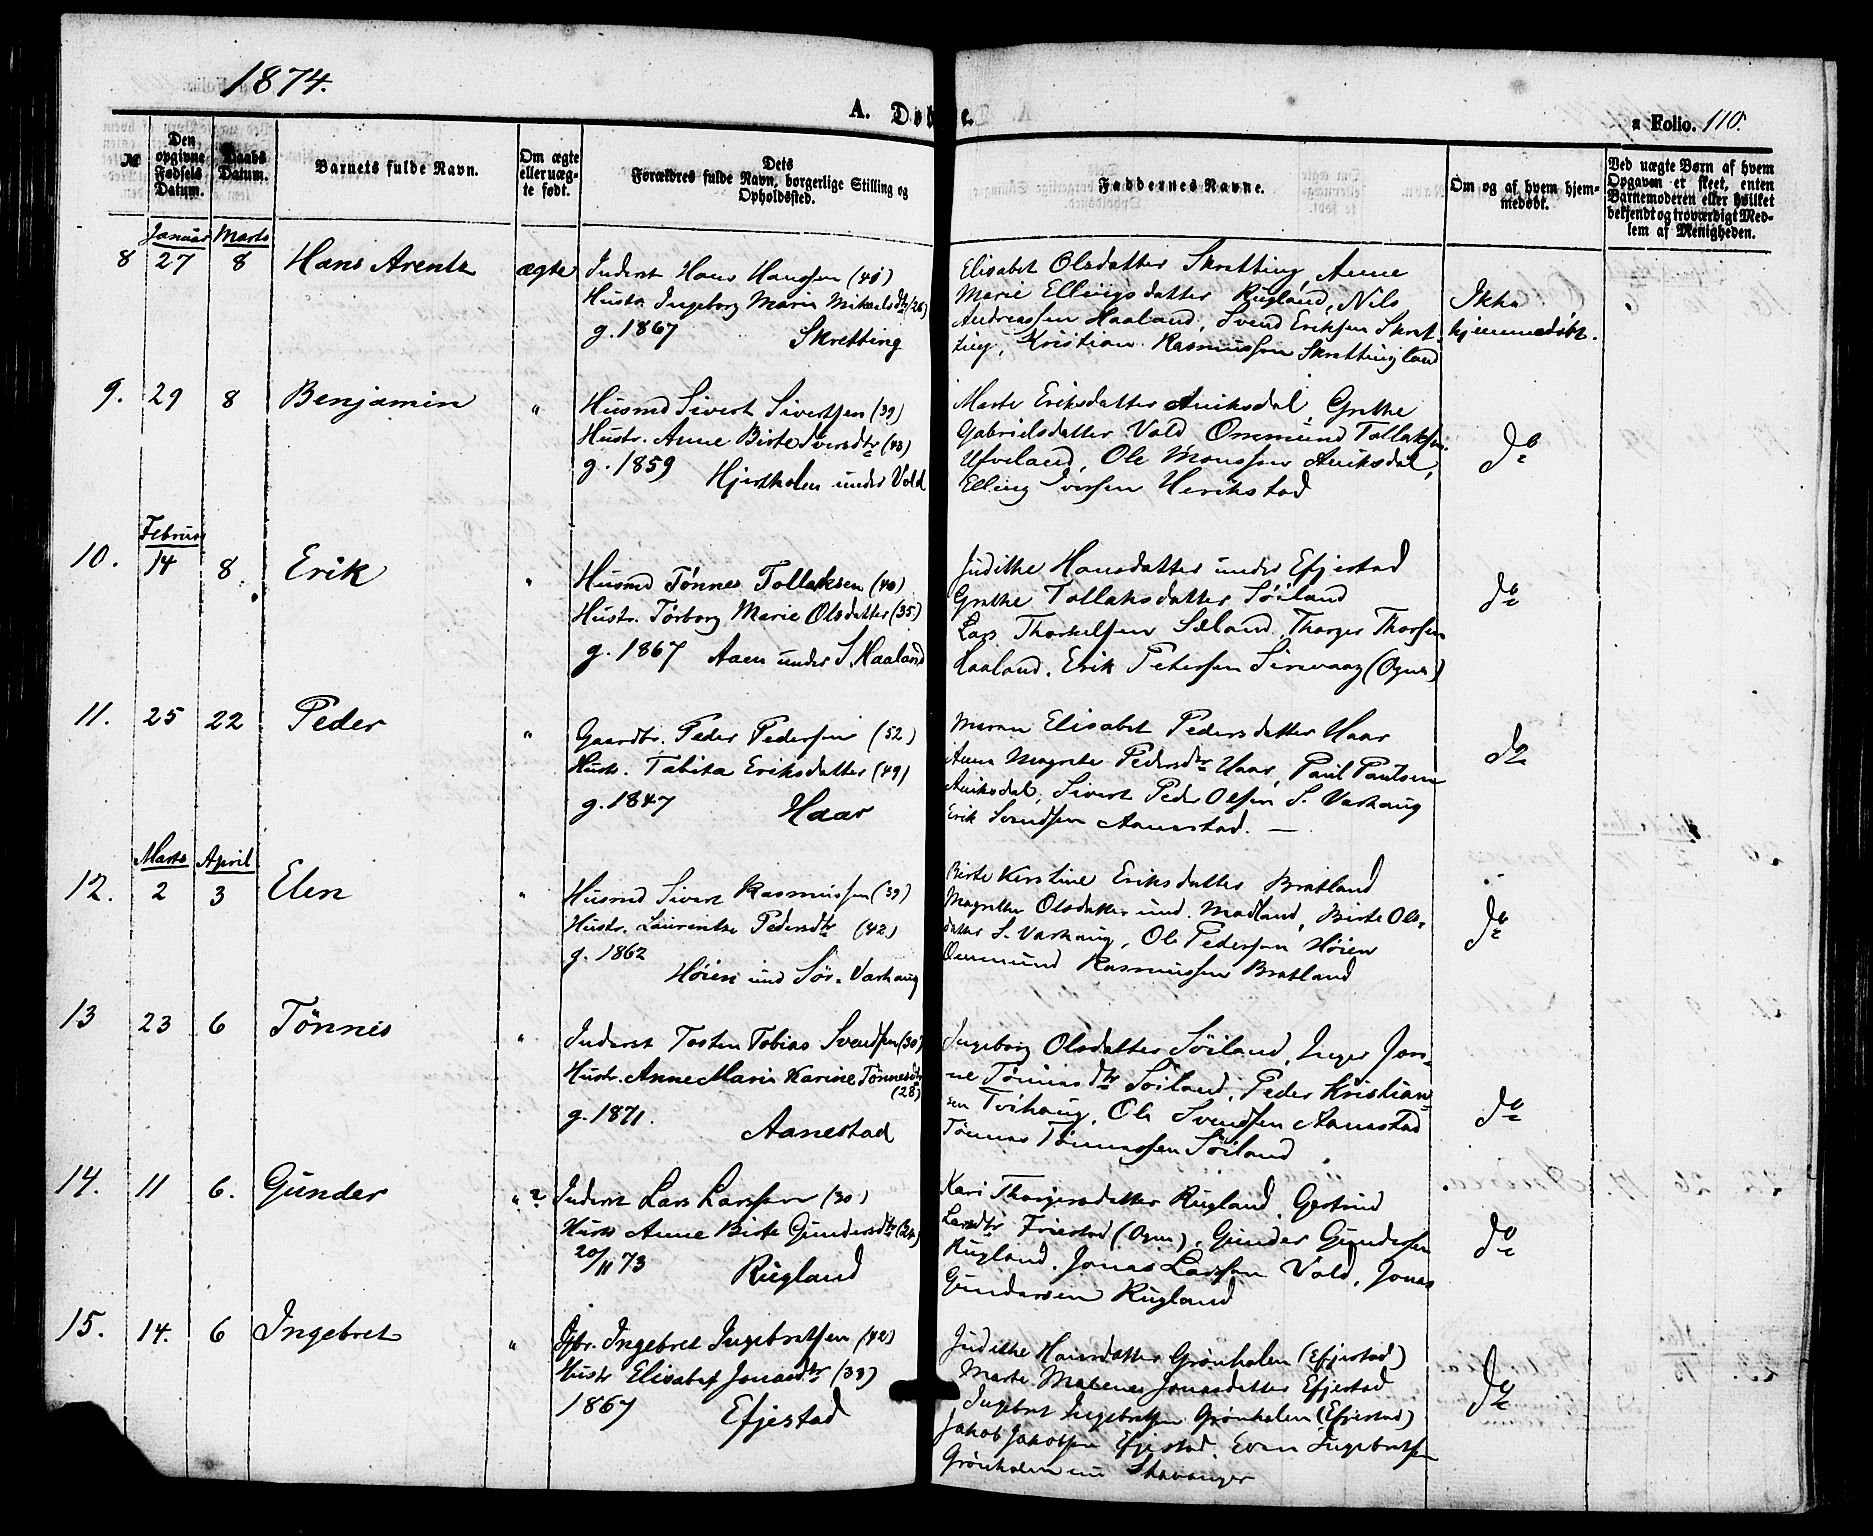 1874.
A. Døbte.
a Folio. 110.
№
Den opgivne Fødsels Datum.
Daabs Datum.
Barnets fulde Navn.
Om ægte eller uægte født.
Dets Forældres fulde Navn, borgerlige Stilling og Opholdssted.
Faddernes Navne.
Om og af hvem hjemmedøbt.
Ved uægte Børn af hvem Opgaven er skeet, enten Barnemoderen eller hvilket bekjendt og troværdigt Medlem af Menigheden.
Januar Marts
8 27 8 Hans Arentz ægte
Inderst Hans Hanssen (40)
Hustr. Ingeborg Maria Mikaelsdtr (26)
g. 1867 Skretting
Elisabet Olsdatter Skretting, Anne
Marie Ellingsdatter Rugland, Nils
Andreassen Haaland, Svend Eriksen Skret-
ting, Kristian Rasmussen Skrettingland
Ikke
hjemmedøbt.
9. 29 8 Benjamin "
Husmd Sivert Sivertsen (39)
Hustr. Anne Birte Iversdtr (43)
g. 1859 Hjertholen under Vold
Marte Eriksdatter Auiksdal, Grethe
Gabrielsdatter Vold, Ommund Tollaksen
Ufveland, Ole Monssen Auiksdal,
Elling Iversen Herikstad
do
Februar
10. 14 8. Erik "
Husmd Tønnes Tollaksen (40)
Hustr. Torborg Marie Olsdatter (35)
g. 1867 Aaen under S. Haaland
Judithe Hansdatter under Efjestad
Grethe Tollaksdatter Söiland
Lars Thorkelsen Sæland, Thorger Thorsen
Haaland. Erik Petersen Sirevaag (Ogna)
do
11. 25 22 Peder "
Gaardbr. Peder Pedersen (52)
Hustr. Tabita Eriksdatter (49)
g. 1847 Haar
Maren Elisabet Pedersdatter Haar
Anna Magrete Pedersdtr Haar, Paul Paulsen
Auiksdal, Sivert Peder Olsen S. Varhaug
Erik Svendsen Aanestad. —
do
Marts April
12. 2 3 Elen "
Husmd Sivert Rasmussen (39)
Hustr. Laurentse Pedersdtr (42)
g. 1862
Høien und Sør. Varhaug
Birte Kerstine Eriksdatter Bratland
Magrethe Olsdatter und. Madland, Birte Ols-
datter S. Varhaug, Ole Pedersen Høien
Ommund Rasmussen Bratland
do
13 23 6 Tönnes "
Inderst Tosten Tobias Svendsen (30)
Hustr. Anne Marie Karine Tönnesdtr
(28)
g. 1871. Aanestad
Ingeborg Olsdatter Söiland, Inger Jon-
ne Tönnesdtr Söiland, Peder Kristian-
sen Tvihaug, Ole Svendsen Aanestad
Tönnes Tönnessen Söiland
do
14. 11 6. Gunder " 2
Inderst Lars Larssen (30)
Hustr Anne Birte Gundersdtr (24)
20/11 73 Rugland
Kari Thorgersdatter Rugland, Gertrud
Larsdtr Friestad (Ogna), Gunder Gundersen
Rugland, Jonas Larssen Vold, Jonas
Gundersen Rugland
do
15. 14. 6 Ingebret "
Gbr. Ingebret Ingebretsen (42)
Hustr Elisabet Jonasdtr (38)
1867 Efjestad
Judithe Hansdatter Grönholen (Efjestad)
Marte Malene Jonasdatter Efjestad
Ingebret Ingebretsen Grönholen (Efjestad)
Jakob Jakobsen Efjestad. Even Ingebretsen
Grönholen nu Stavanger
do